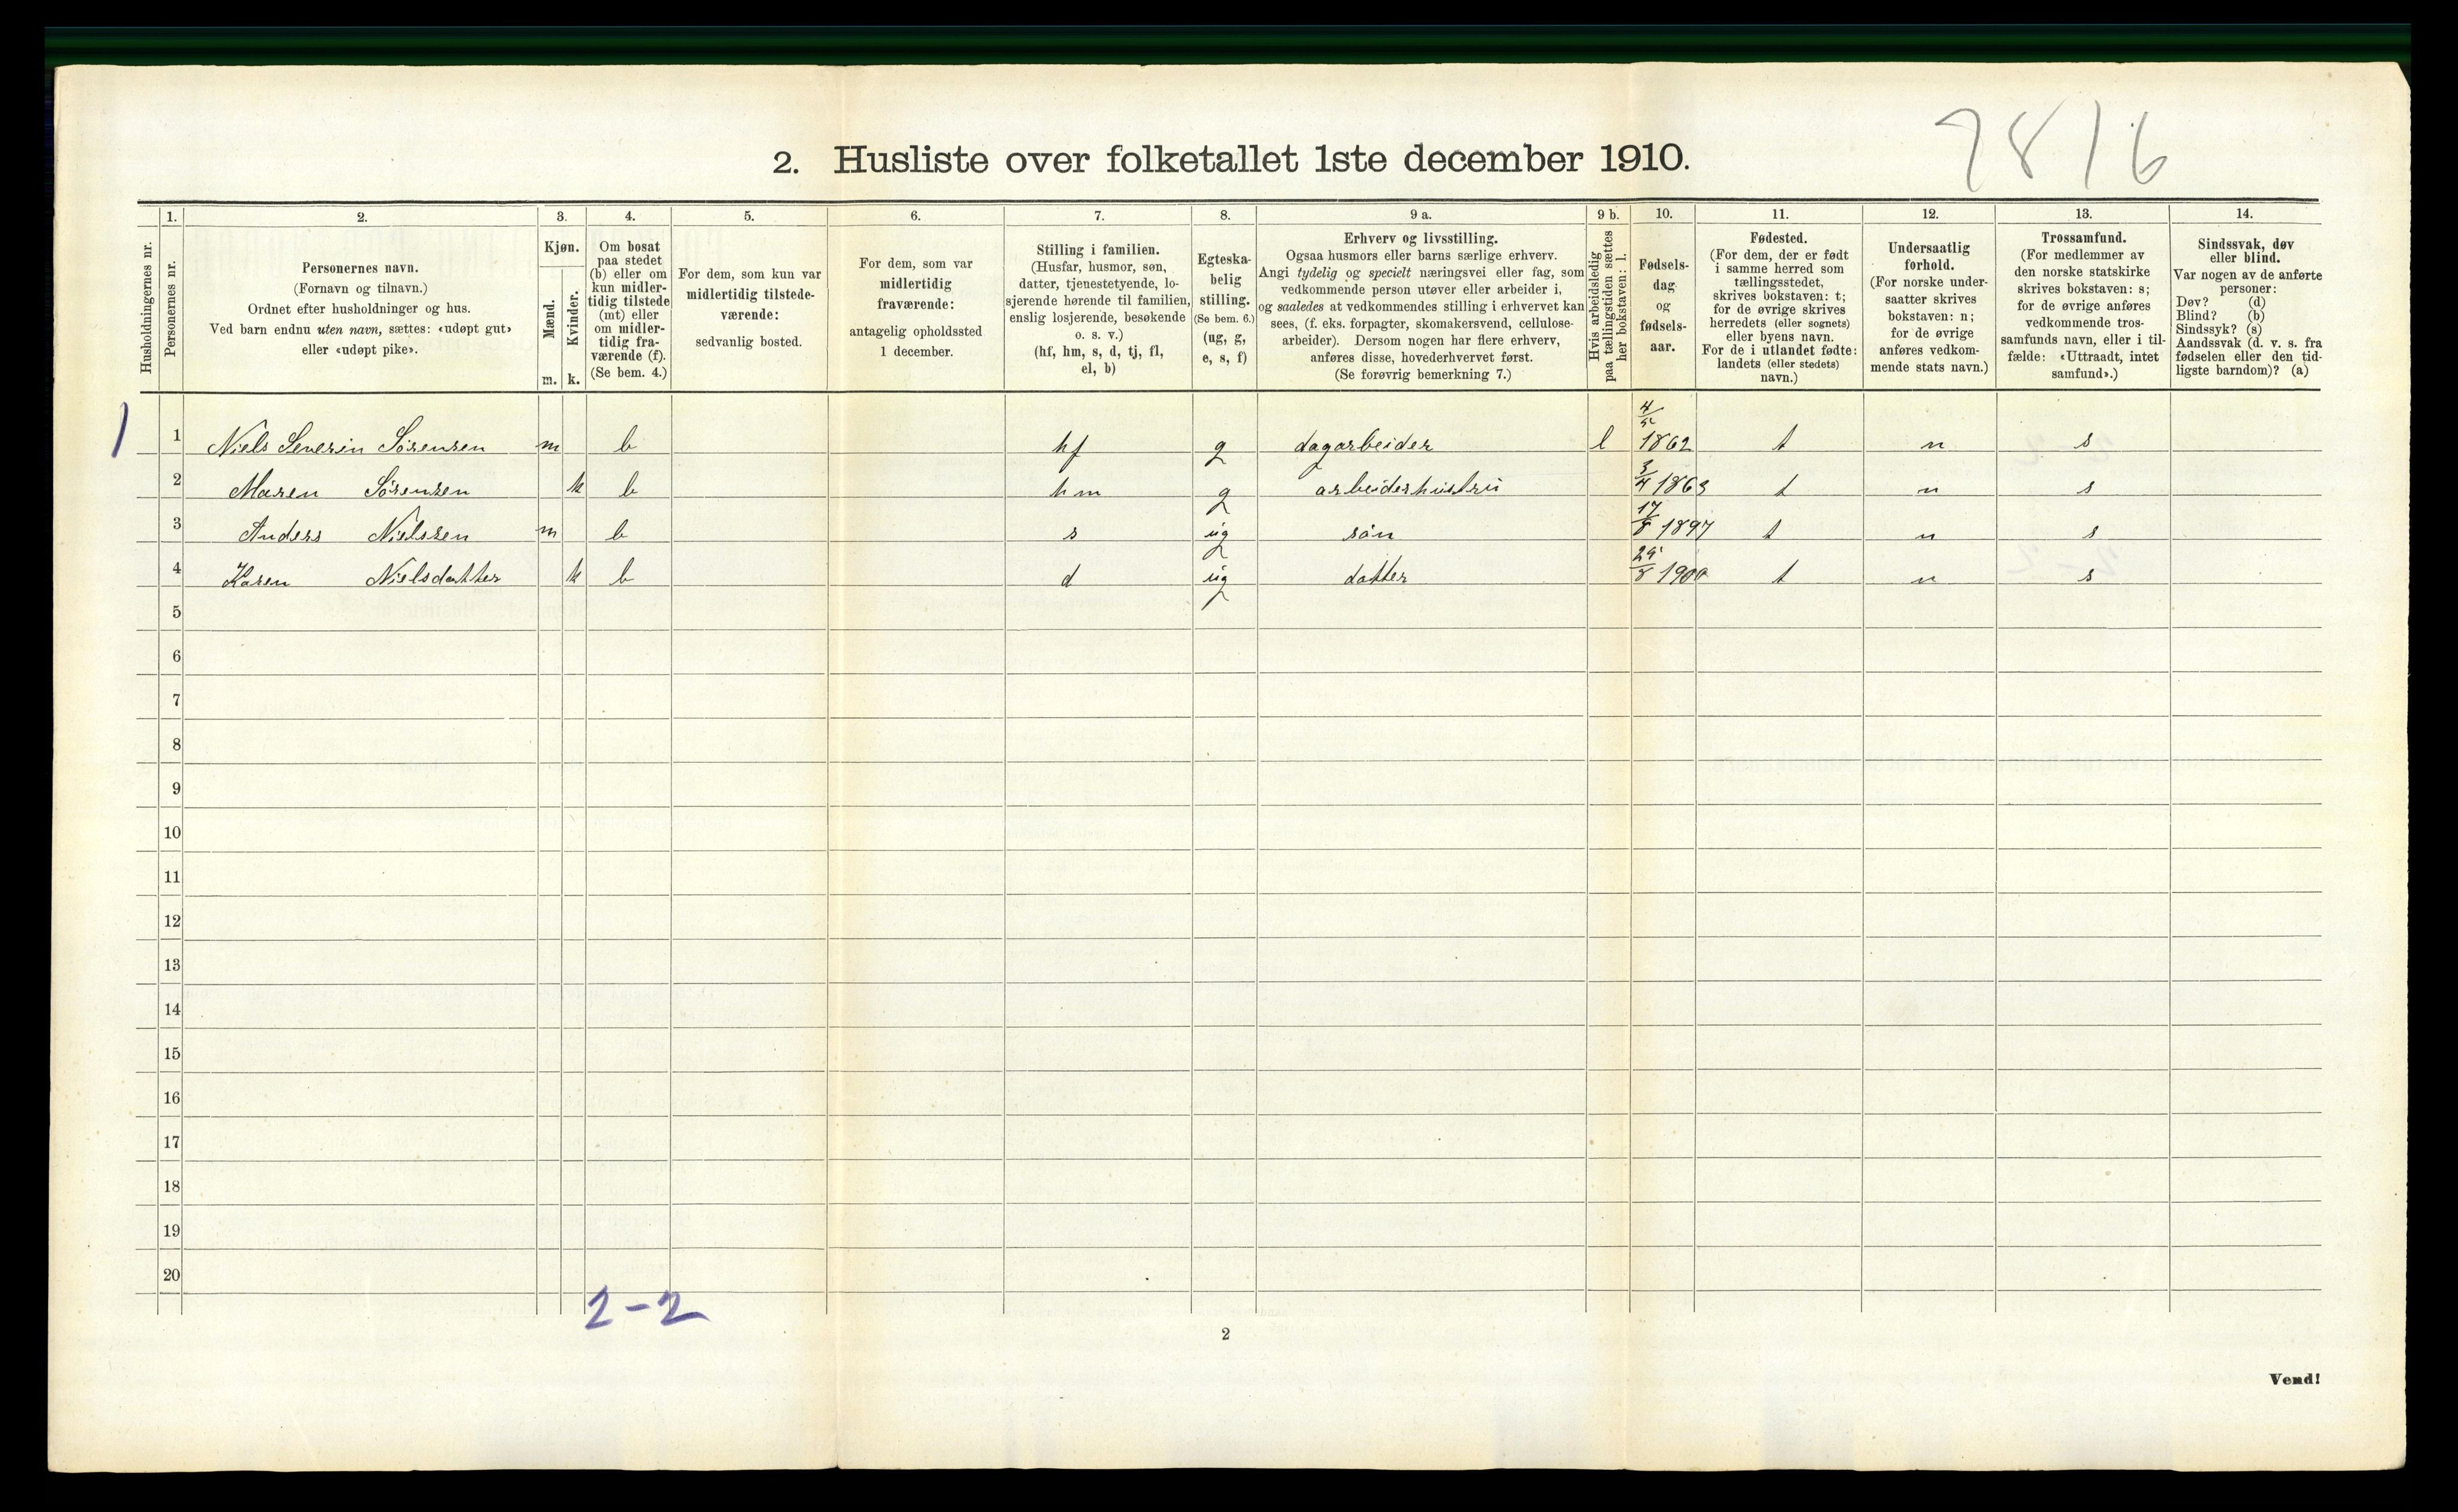 7816
2. Husliste over folketallet 1ste december 1910.
Husholdningernes nr.
1.
Personernes nr.
2.
Personernes navn.
(Fornavn og tilnavn.)
Ordnet efter husholdninger og hus.
Ved barn endnu uten navn, sættes: «udøpt gut»
eller «udøpt pike».
3.
Kjøn.
Mænd.
Kvinder.
m. k.
4.
Om bosat
paa stedet
(b) eller om
kun midler-
tidig tilstede
(mt) eller
om midler-
tidig fra-
værende (f).
(Se bem. 4.)
5.
For dem, som kun var
midlertidig tilstede-
værende:
sedvanlig bosted.
6.
For dem, som var
midlertidig
fraværende:
antagelig opholdssted
1 december.
7.
Stilling i familien.
(Husfar, husmor, søn,
datter, tjenestetyende, lo-
sjerende hørende til familien,
enslig losjerende, besøkende
o. s. v.)
(hf, hm, s, d, tj, fl,
el, b)
8.
Egteska-
belig
stilling.
(Se bem. 6.)
(ug, g,
e, s, f)
9 a.
Erhverv og livsstilling.
Ogsaa husmors eller barns særlige erhverv.
Angi tydelig og specielt næringsvei eller fag, som
vedkommende person utøver eller arbeider i,
og saaledes at vedkommendes stilling i erhvervet kan
sees, (f. eks. forpagter, skomakersvend, cellulose-
arbeider). Dersom nogen har flere erhverv,
anføres disse, hovederhvervet først.
(Se forøvrig bemerkning 7.)
9 b.
Hvis arbeidsledig
paa tællingstiden sættes
her bokstaven: l.
10.
Fødsels-
dag
og
fødsels-
aar.
11.
Fødested.
(For dem, der er født
i samme herred som
tællingsstedet,
skrives bokstaven: t;
for de øvrige skrives
herredets (eller sognets)
eller byens navn.
For de i utlandet fødte:
landets (eller stedets)
navn.)
12.
Undersaatlig
forhold.
(For norske under-
saatter skrives
bokstaven: n;
for de øvrige
anføres vedkom-
mende stats navn.)
13.
Trossamfund.
(For medlemmer av
den norske statskirke
skrives bokstaven: s;
for de øvrige anføres
vedkommende tros-
samfunds navn, eller i til-
fælde: «Uttraadt, intet
samfund».)
14.
Sindssvak, døv
eller blind.
Var nogen av de anførte
personer:
Døv? (d)
Blind? (b)
Sindssyk? (s)
Aandssvak (d. v. s. fra
fødselen eller den tid-
ligste barndom)? (a)
1 1 Niels Severin Sörensen m b hf g dagarbeider l 1862 t n s
2 Maren Sörensen k b hm g arbeiderhustru 3/4 1863 t n s
3 Anders Nielssen m b s ug sön 17/8 1897 t n s
4 Karen Nielsdatter k b d ug datter 29/8 1900 t n s
5
6
7
8
9
10
11
12
13
14
15
16
17
18
19
20
2-2
2
Vend!